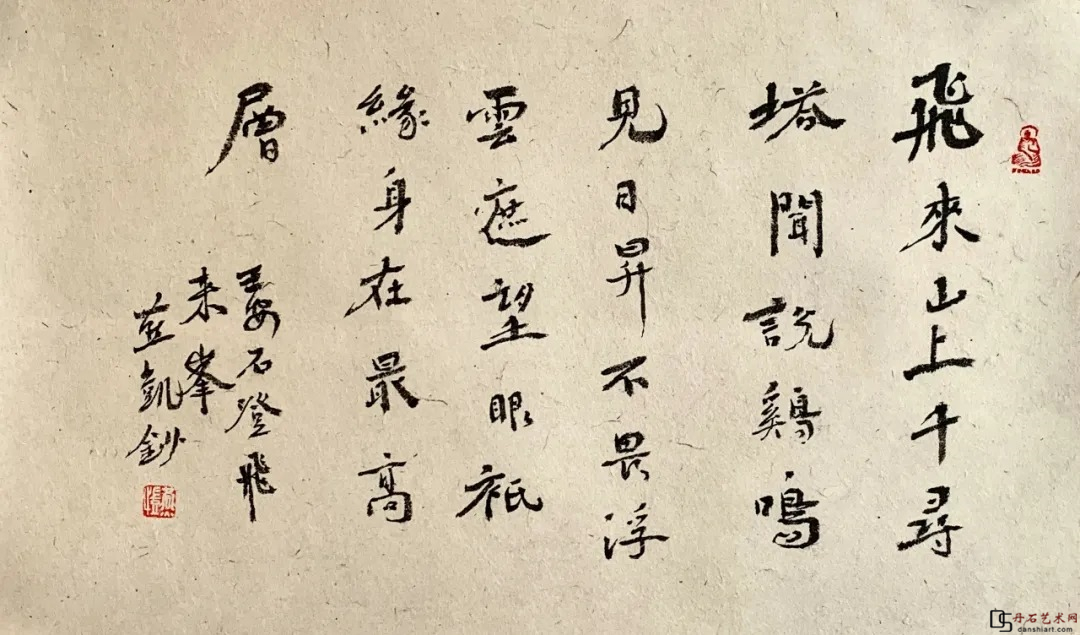 飛來山上千尋
塔聞說鷄鳴
見日昇不畏浮
雲遮望眼祇
緣身在最高
層
王安石登飛
来峯
燕凱鈔
丹石艺术网
danshiart.com